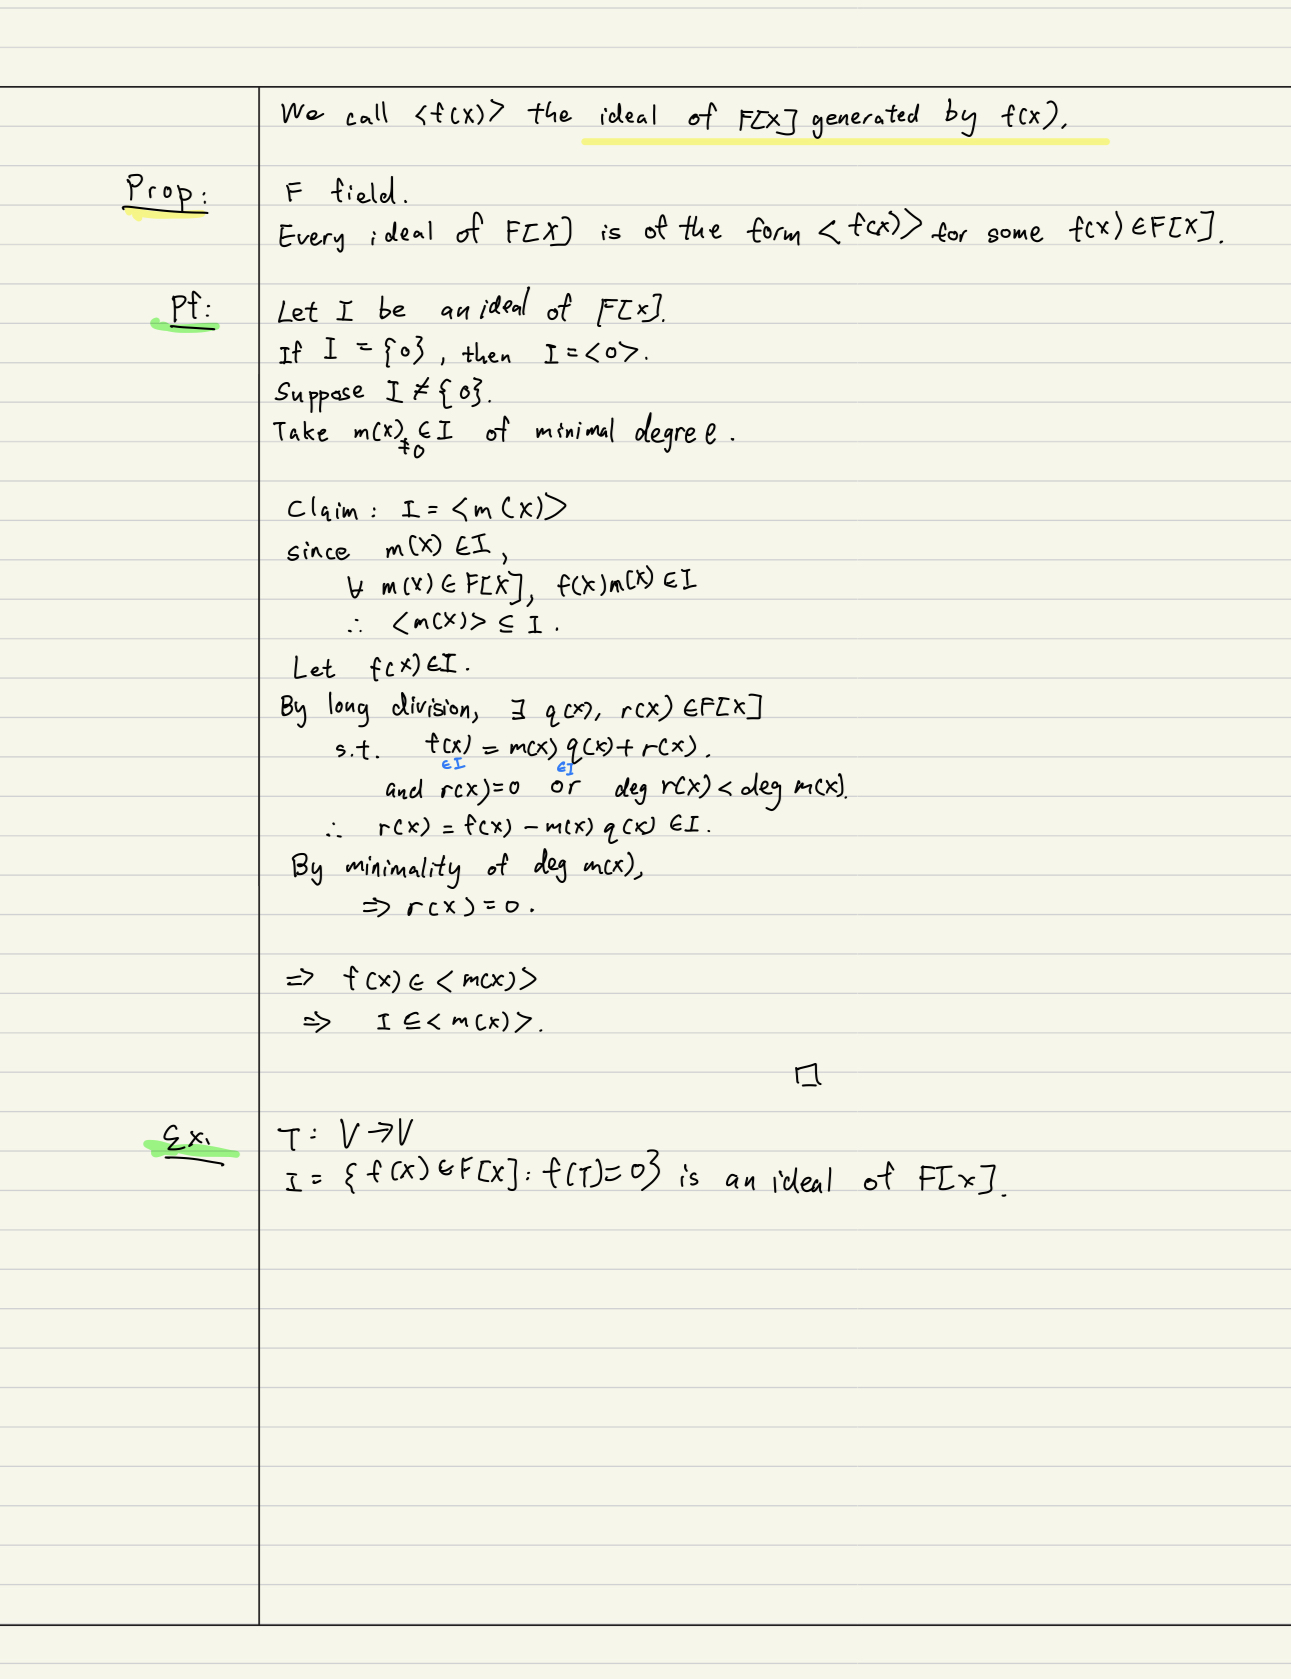 We call <f(x)> the ideal of F[x] generated by f(x).
Prop: F field.
Every ideal of F[X] is of the form <f(x)> for some f(x) ∈ F[X].
Pf: Let I be an ideal of F[x].
If I = {0}, then I = <0>.
Suppose I ≠ {0}.
Take m(x) ∈ I of minimal degree.
≠0
Claim: I = <m(x)>
since m(x) ∈ I,
∀ m(x) ∈ F[X], f(x)m(x) ∈ I
∴ <m(x)> ⊆ I.
Let f(x) ∈ I.
By long division, ∃ q(x), r(x) ∈ F[x]
s.t. f(x) = m(x) q(x) + r(x).
∈I ∈I
and r(x)=0 or deg r(x) < deg m(x).
∴ r(x) = f(x) - m(x) q(x) ∈ I.
By minimality of deg m(x),
⇒ r(x) = 0.
⇒ f(x) ∈ <m(x)>
⇒ I ⊆ <m(x)>.
□
Ex. T: V → V
I = {f(x) ∈ F[x] : f(T)=0} is an ideal of F[x].